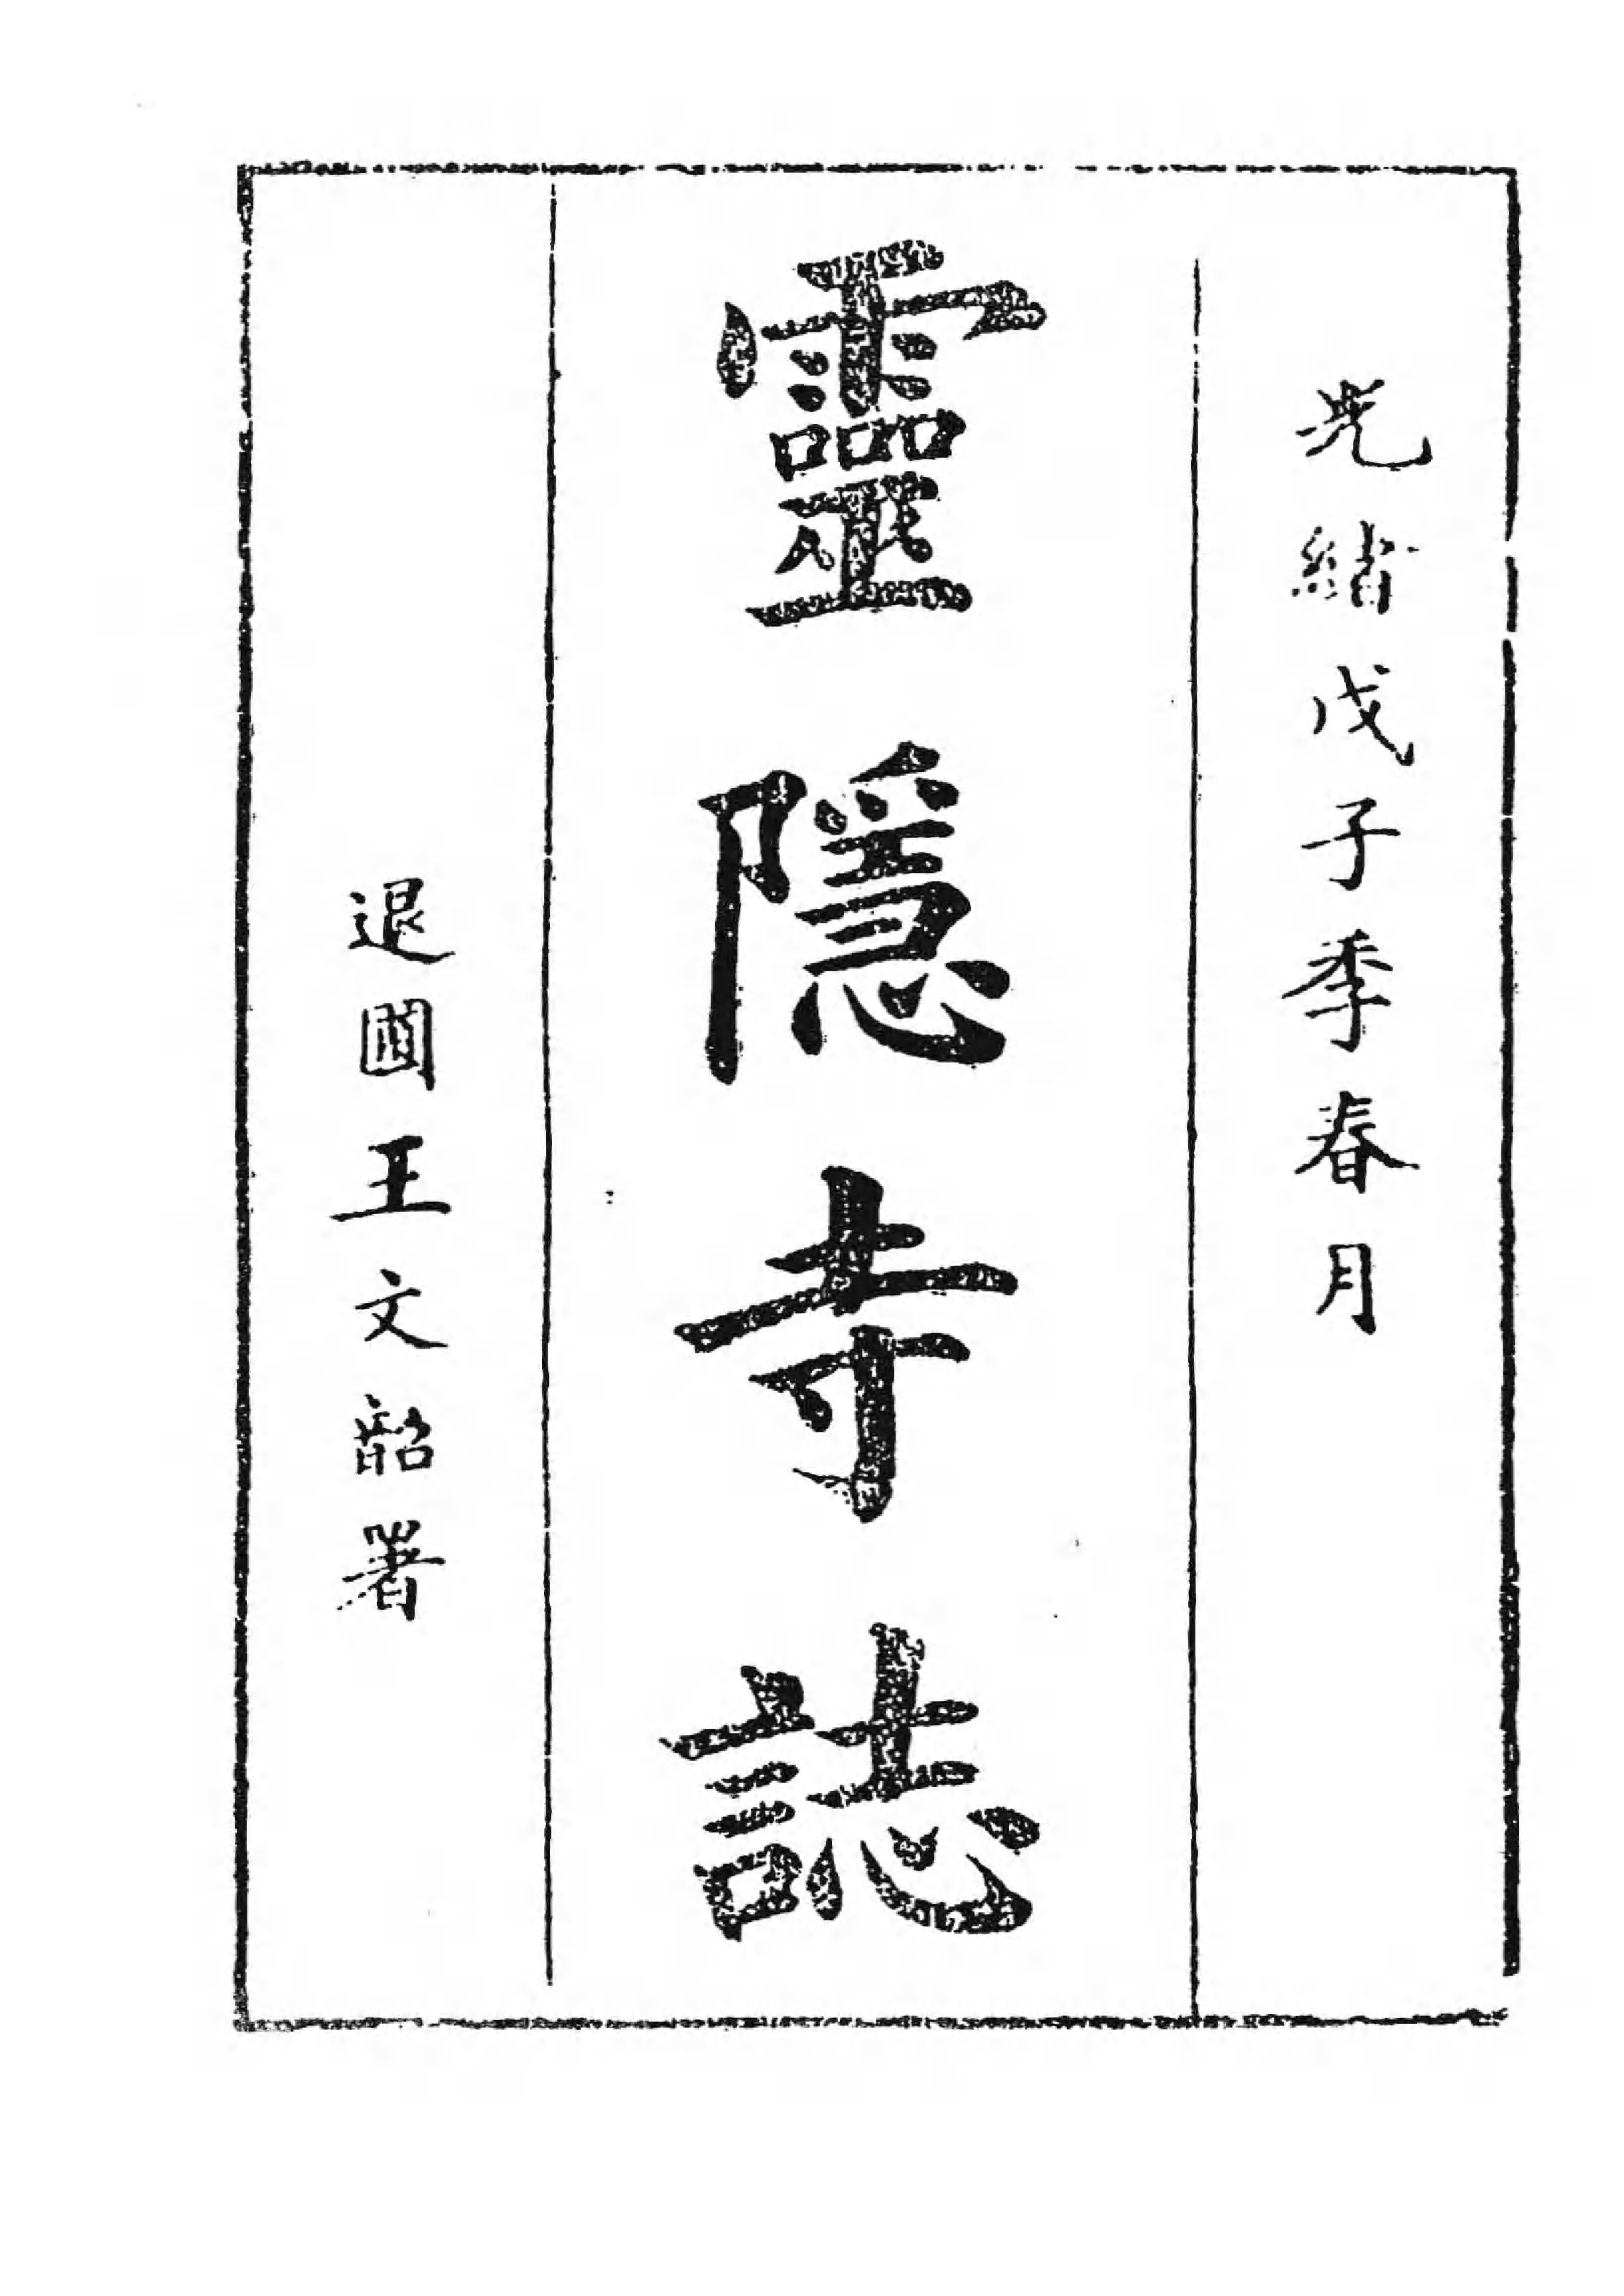 光緒戊子季春月
靈隱寺誌
退圃王文韶署